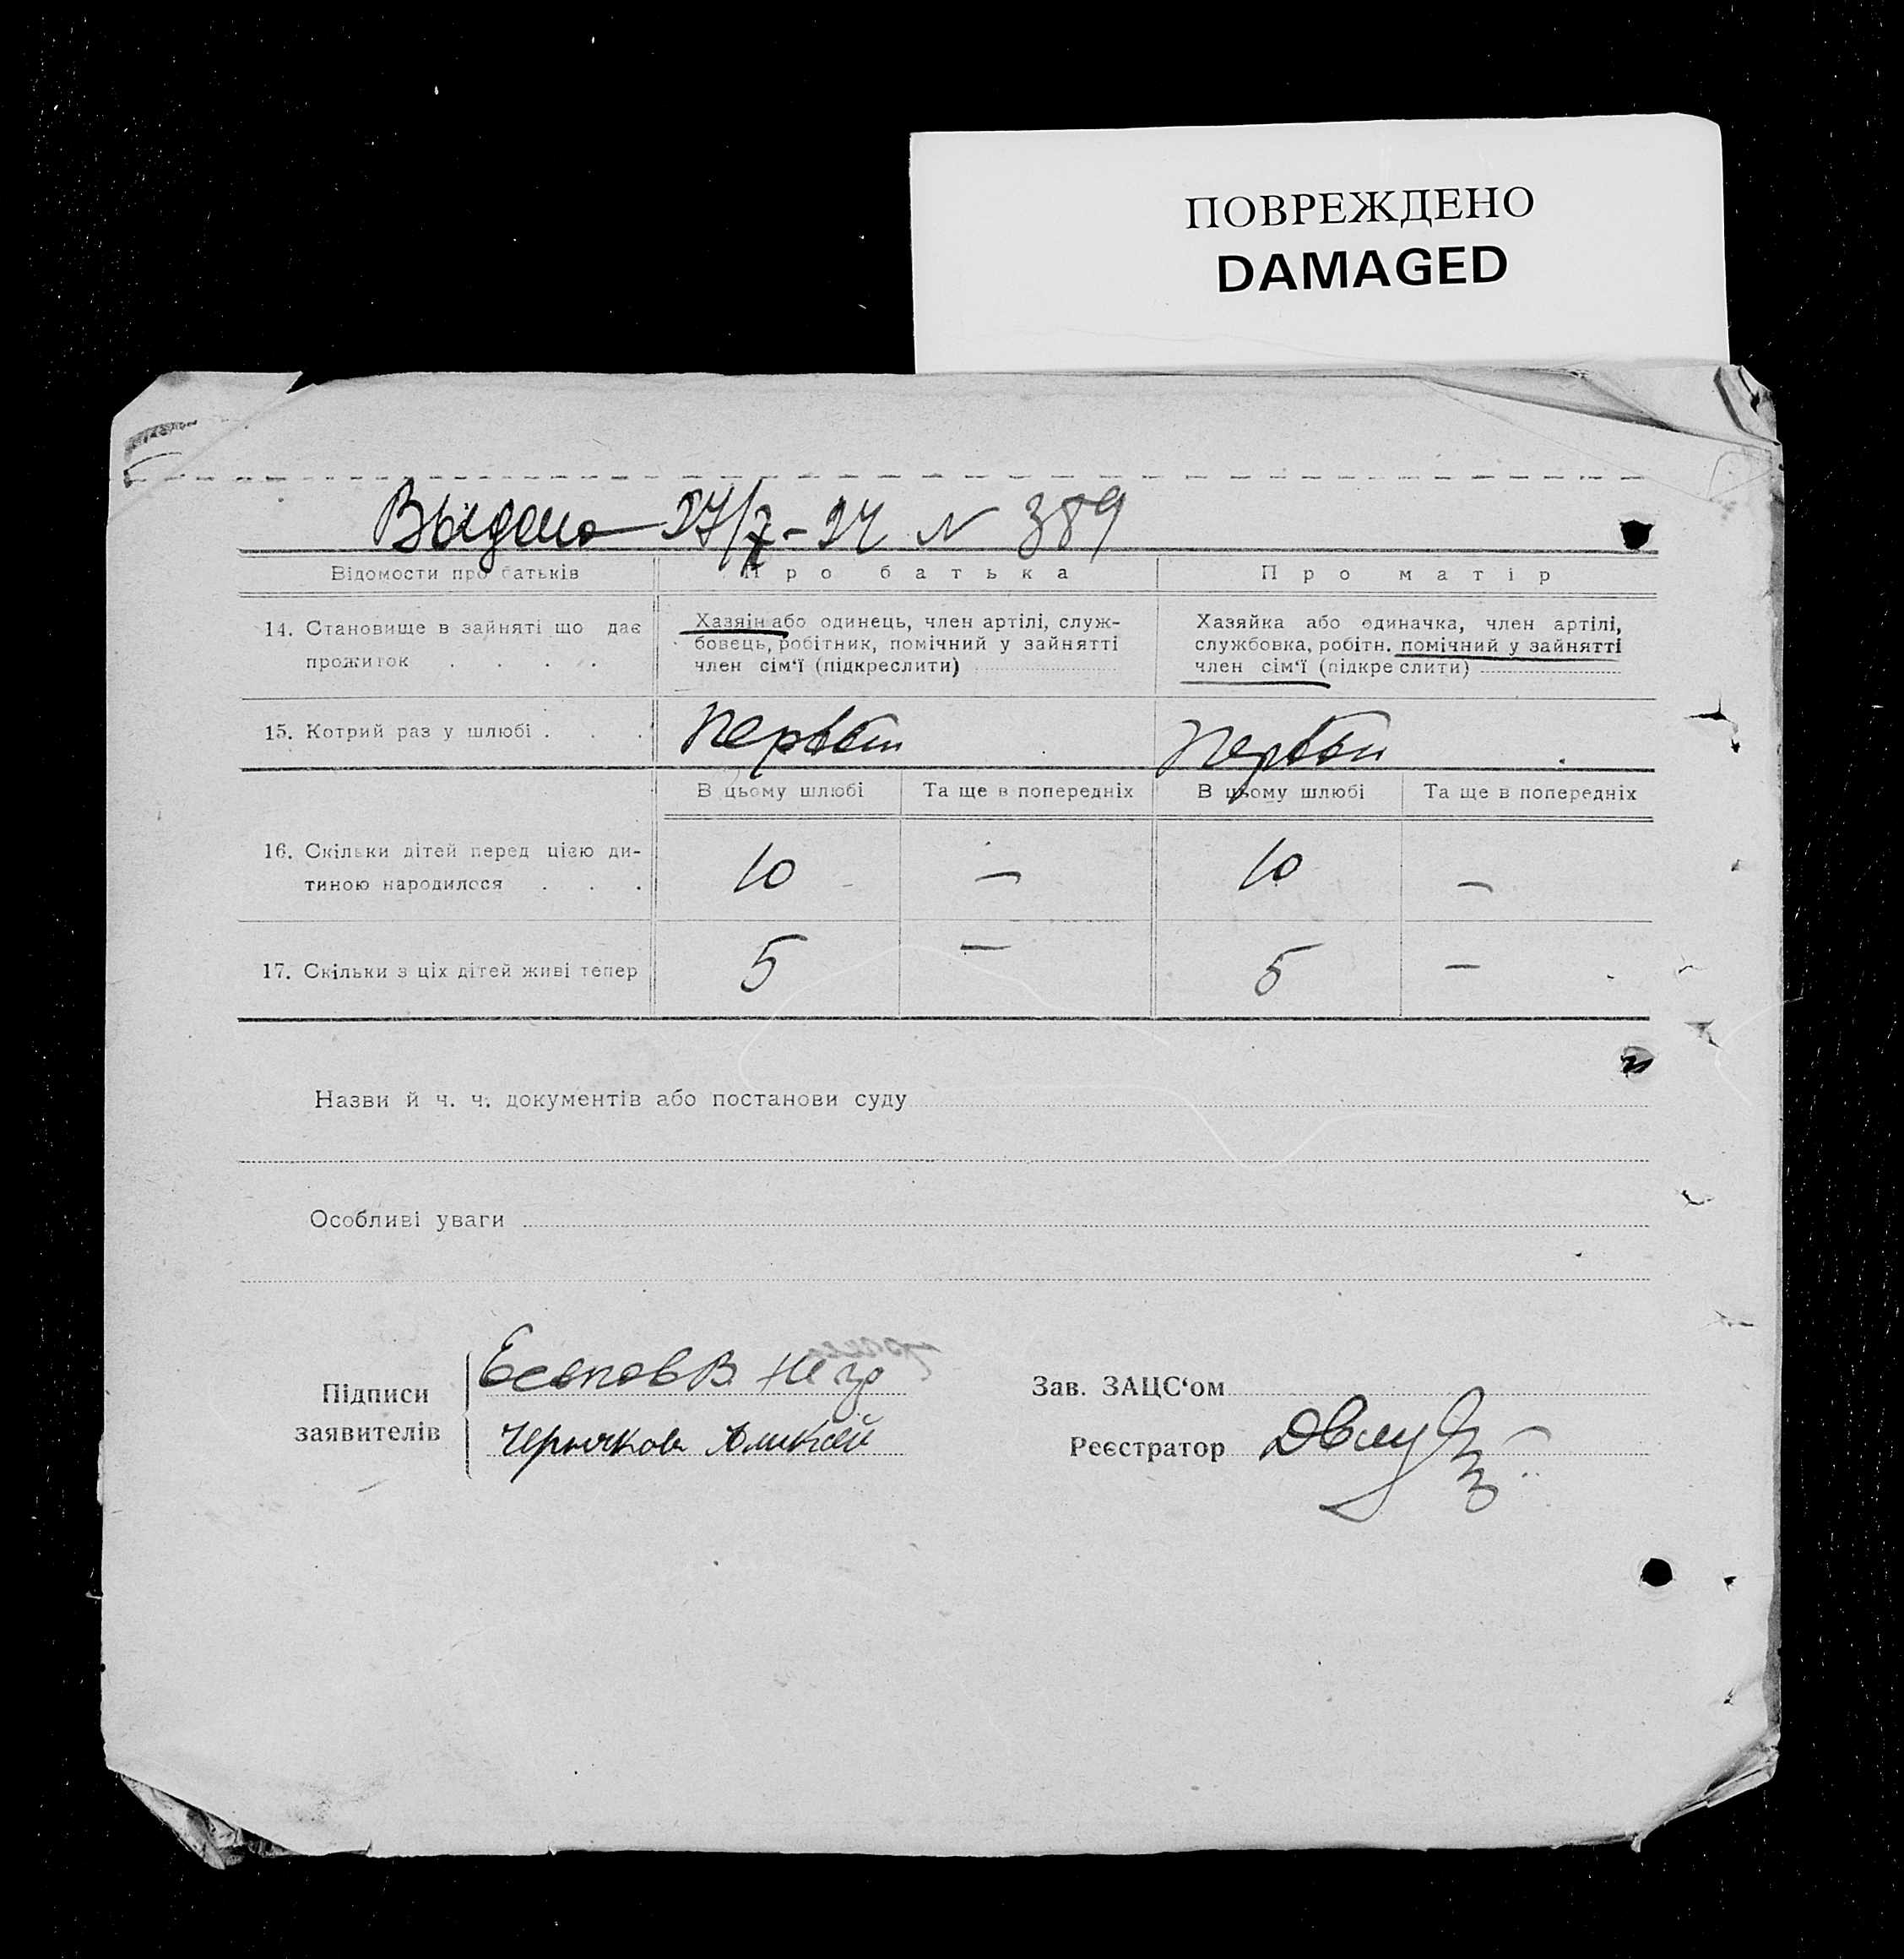 ПОВРЕЖДЕНО
DAMAGED
Выдано 27/7 - 27 N 389
Відомости про батьків
Про батька
Про матір
14. Становище в зайняті що дає прожиток . . . .
Хазяін або одинець, член артілі, служ-
бовець, робітник, помічний у зайнятті
член сім‘ї (підкреслити)
Хазяйка або одиначка, член артілі,
службовка, робітн. помічний у зайнятті
член сім‘ї (підкреслити)
15. Котрий раз у шлюбі . . .
Первый
Первый
В цьому шлюбі
Та ще в попередніх
В цьому шлюбі
Та ще в попередніх
16. Скільки дітей перед цією ди-
тиною народилося . . .
10
—
10
—
17. Скільки з ціх дітей живі тепер
5
—
5
—
Назви й ч. ч. документів або постанови суду
Особливі уваги
Підписи
заявителів
Зав. ЗАЦС‘ом
Реєстратор